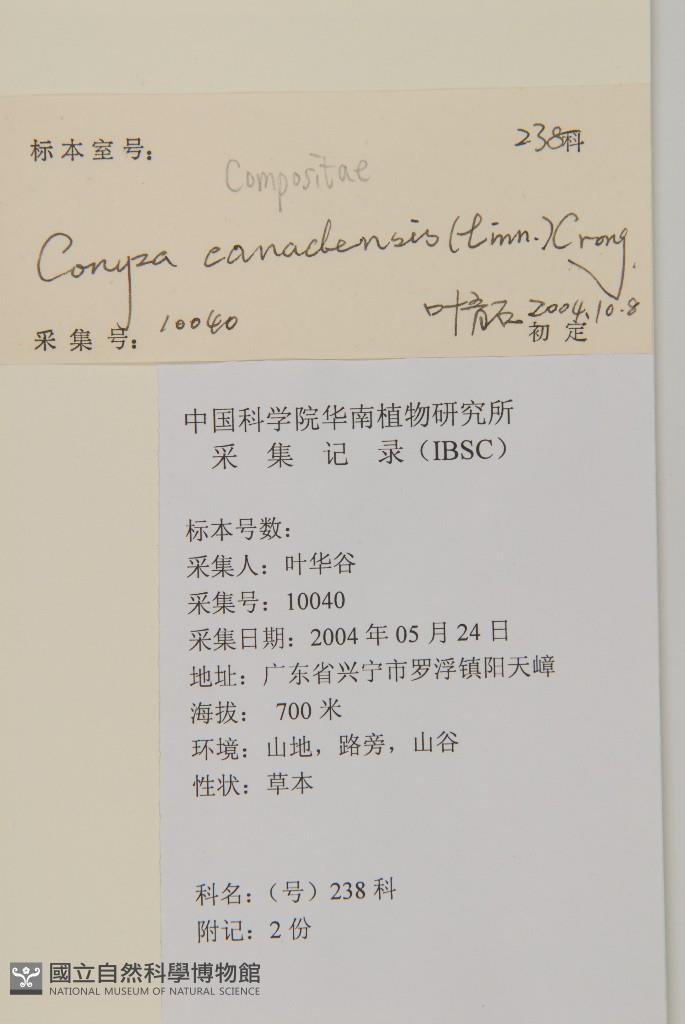 标本室号：
238科
Compositae
Conyza canadensis (Linn.) Cronq.
采集号：10040
叶育石 2004.10.8
初定
中国科学院华南植物研究所
采集记录（IBSC）
标本号数：
采集人：叶华谷
采集号：10040
采集日期：2004 年 05 月 24 日
地址：广东省兴宁市罗浮镇阳天嶂
海拔： 700 米
环境：山地，路旁，山谷
性状：草本
科名：（号）238 科
附记：2 份
國立自然科學博物館
NATIONAL MUSEUM OF NATURAL SCIENCE